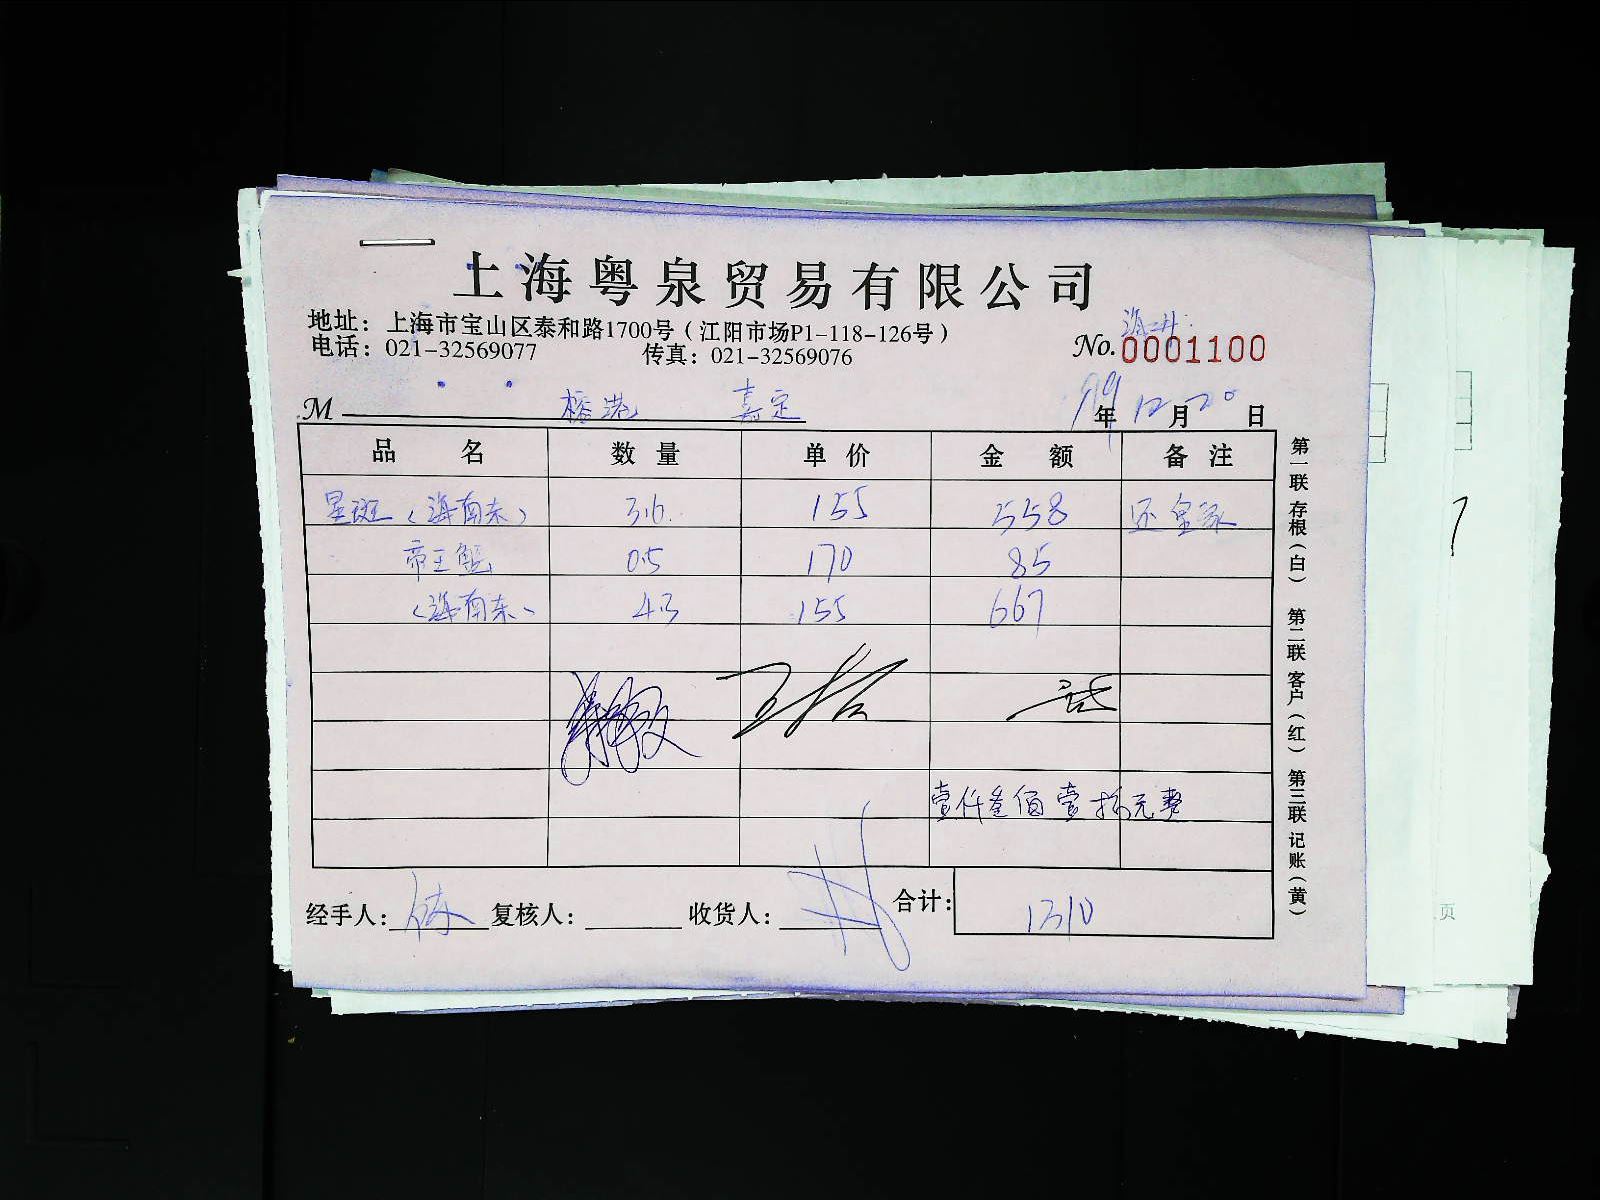 上海粤泉贸易有限公司
地址：上海市宝山区泰和路1700号（江阳市场P1-118-126号）
电话：021-32569077 传真：021-32569076
No.0001100
M 榕港 嘉定 年12月20日
品名 数量 单价 金额 备注
星斑（海南东） 3.6 155 558 还
帝王蟹 0.5 170 85
（海南东） 4.3 155 667
壹仟叁佰壹拾元整
经手人： 复核人： 收货人： 合计： 1310
第一联 存根（白） 第二联 客户（红） 第三联 记账（黄）
页